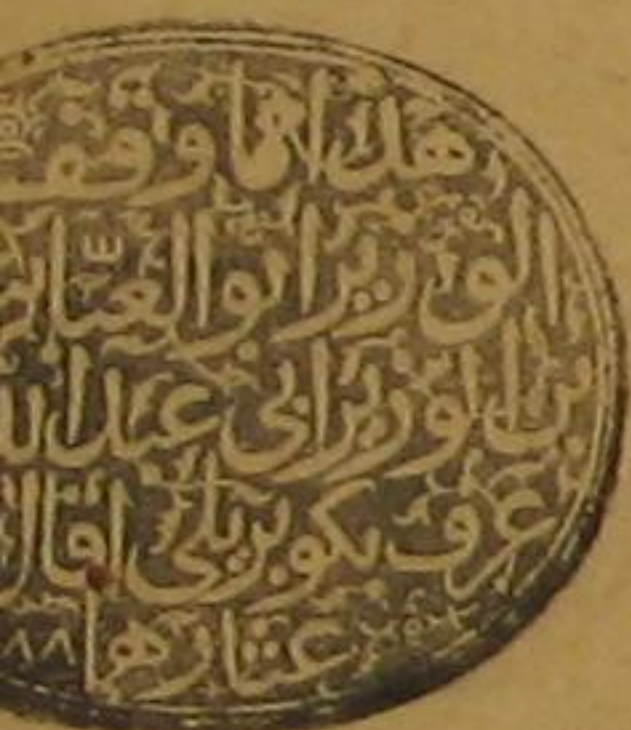 هذا ما وقف
الوزير ابو العبا
بن الوزير ابي عبد الله
عرف بكوبريلي اقال
عثارهما ٨٨